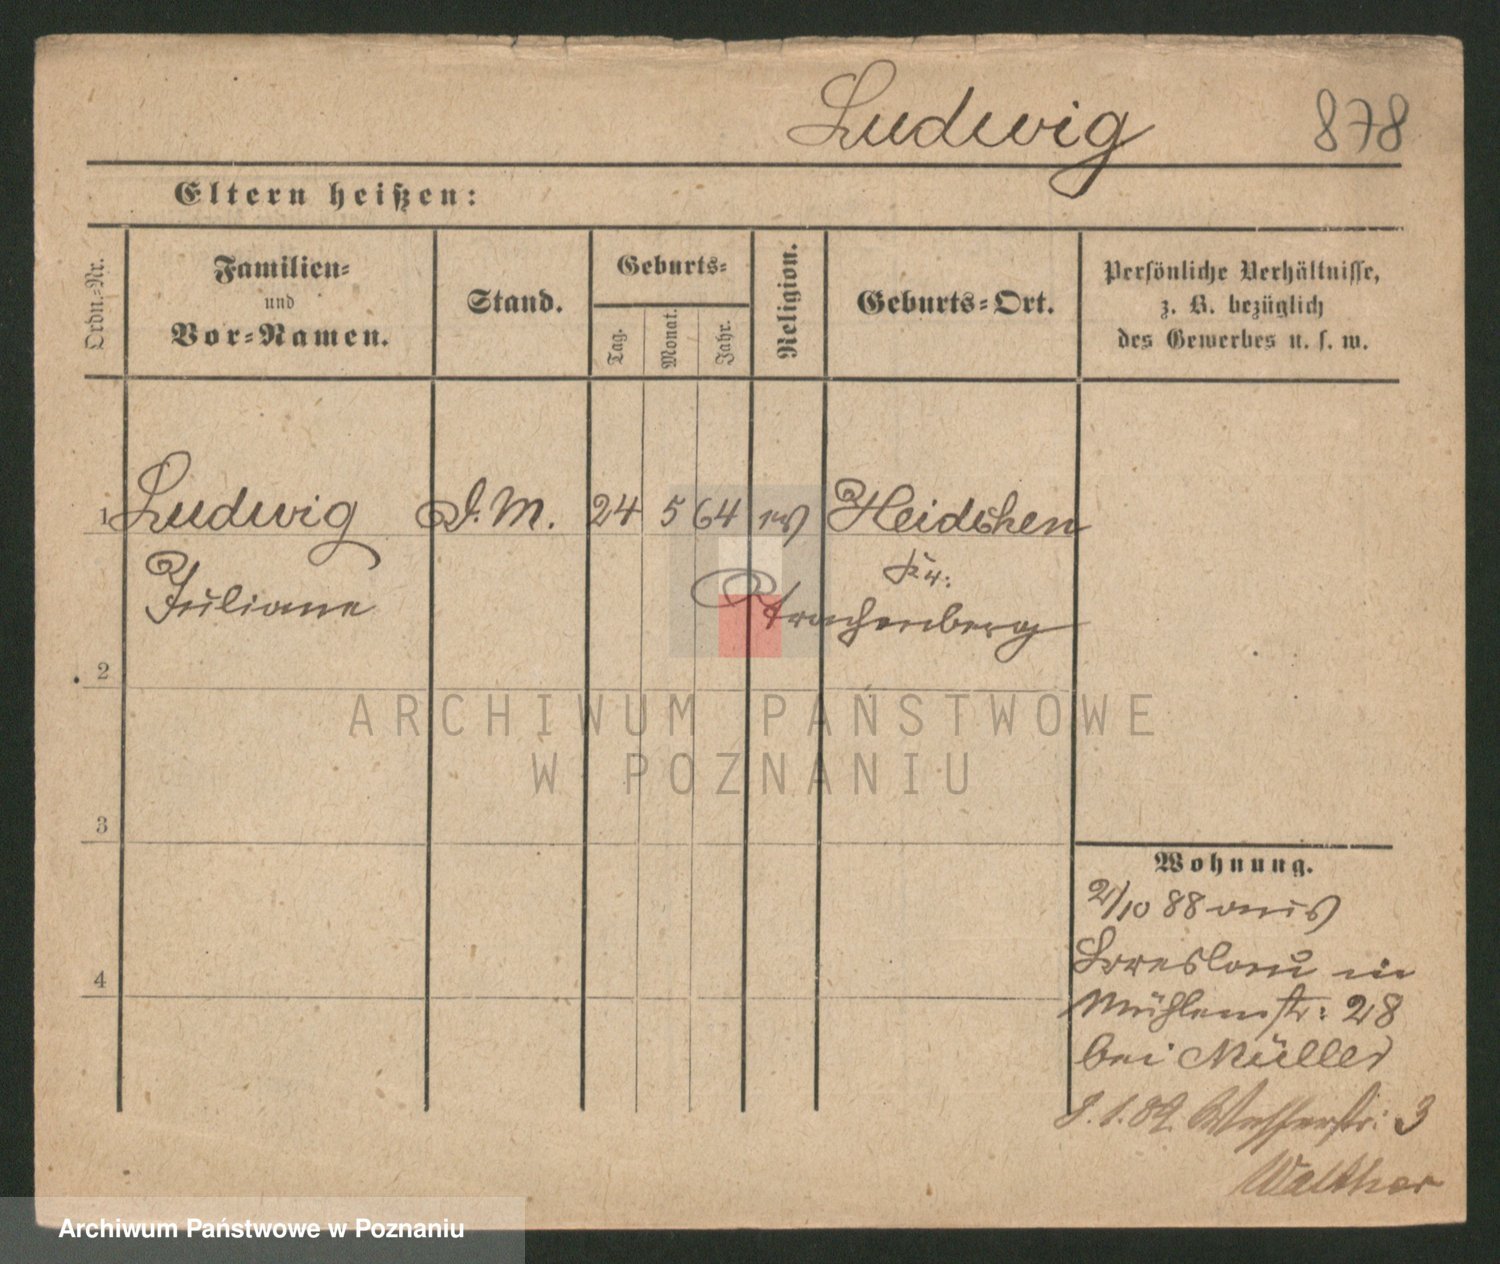 Ludwig 878
Eltern heißen:
Ordn.-Nr.
Familien-
und
Vor-Namen.
Stand.
Geburts-
Tag.
Monat.
Jahr.
Religion.
Geburts-Ort.
Persönliche Verhältnisse,
z. B. bezüglich
des Gewerbes u. s. w.
1 Ludwig D. M. 24 5 64 ev Heidchen
Juliane
Kr:
Trachenberg
2
3
4
Wohnung.
2/10 88 aus
Breslau in
Mühlenstr: 28
bei Müller
8.1.89. Wasserstr: 3
Walther
ARCHIWUM PAŃSTWOWE
W POZNANIU
Archiwum Państwowe w Poznaniu